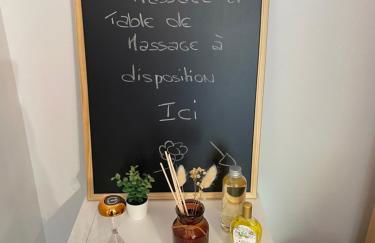 Massage et
Table de
Massage à
disposition
Ici